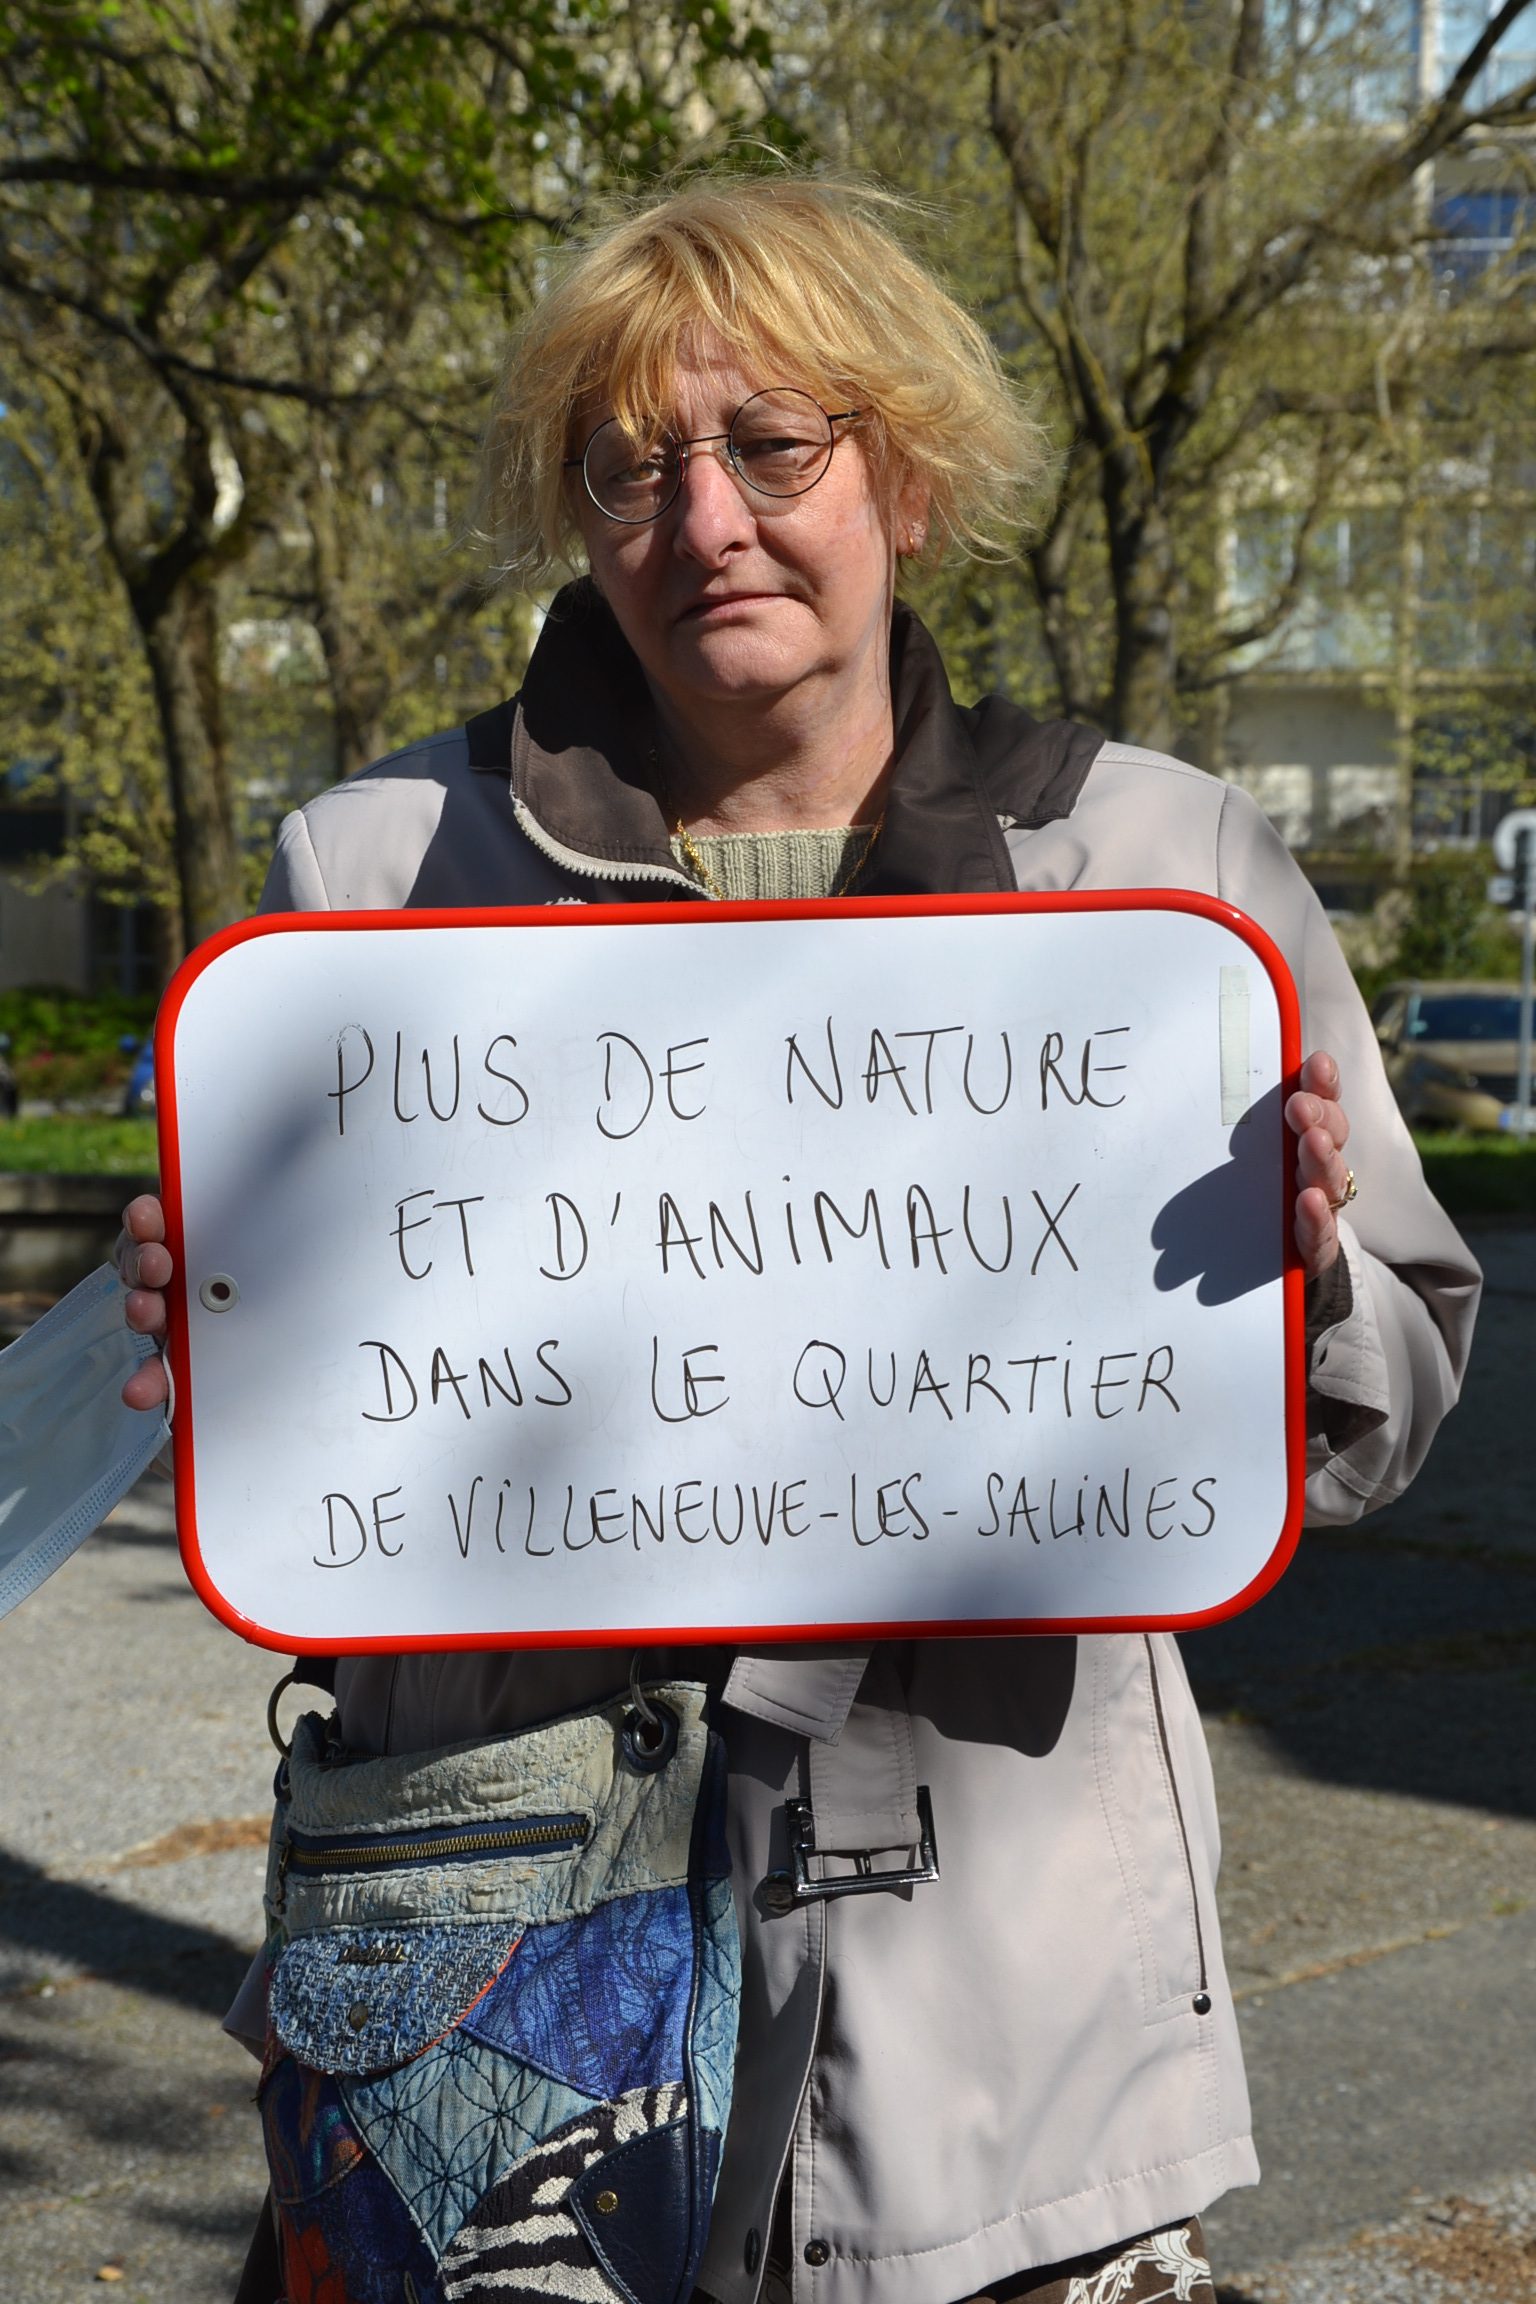 PLUS DE NATURE
ET D'ANIMAUX
DANS LE QUARTIER
DE VILLENEUVE-LES-SALINES